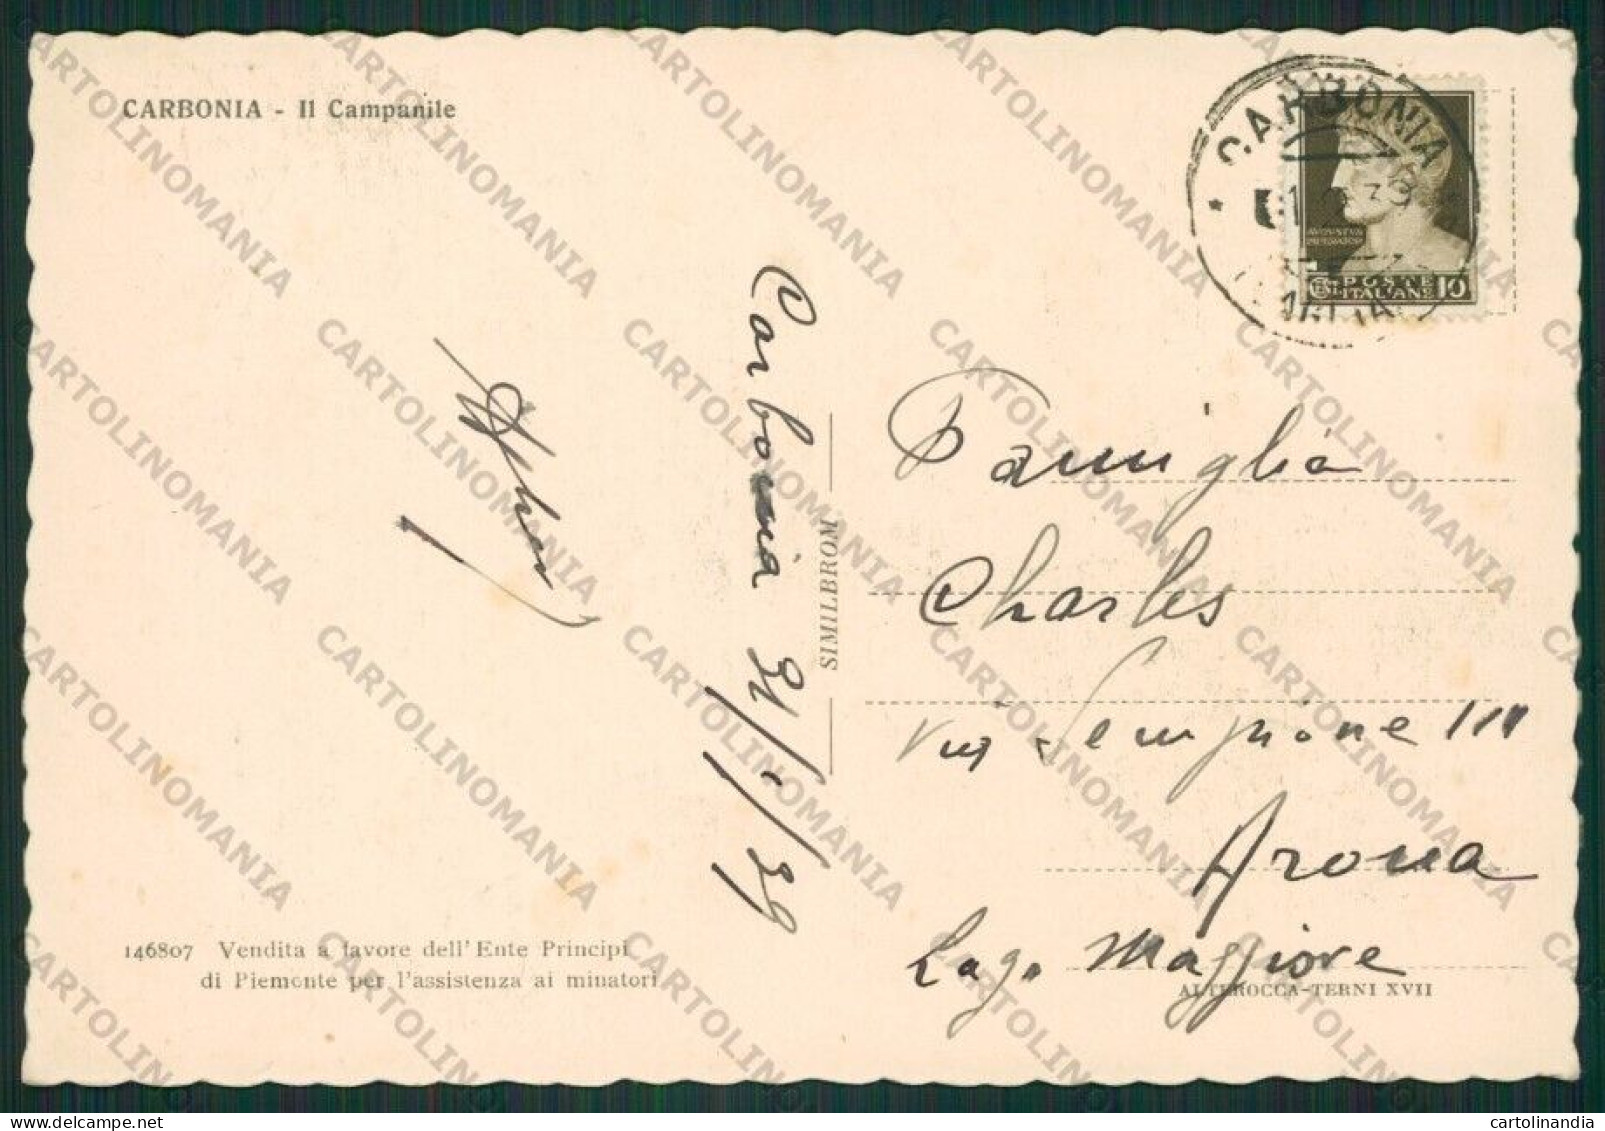 CARBONIA - Il Campanile
CARBONIA
AVGVSTVS
IMPERATOR
POSTE
ITALIANE
10
Carbonia 31/1/39
SIMILBROM
Famiglia
Charles
via Sempione 111
Arona
Lago Maggiore
146807 Vendita a favore dell'Ente Principi
di Piemonte per l'assistenza ai minatori
ALTEROCCA-TERNI XVII
CARTOLINOMANIA
cartolinandia